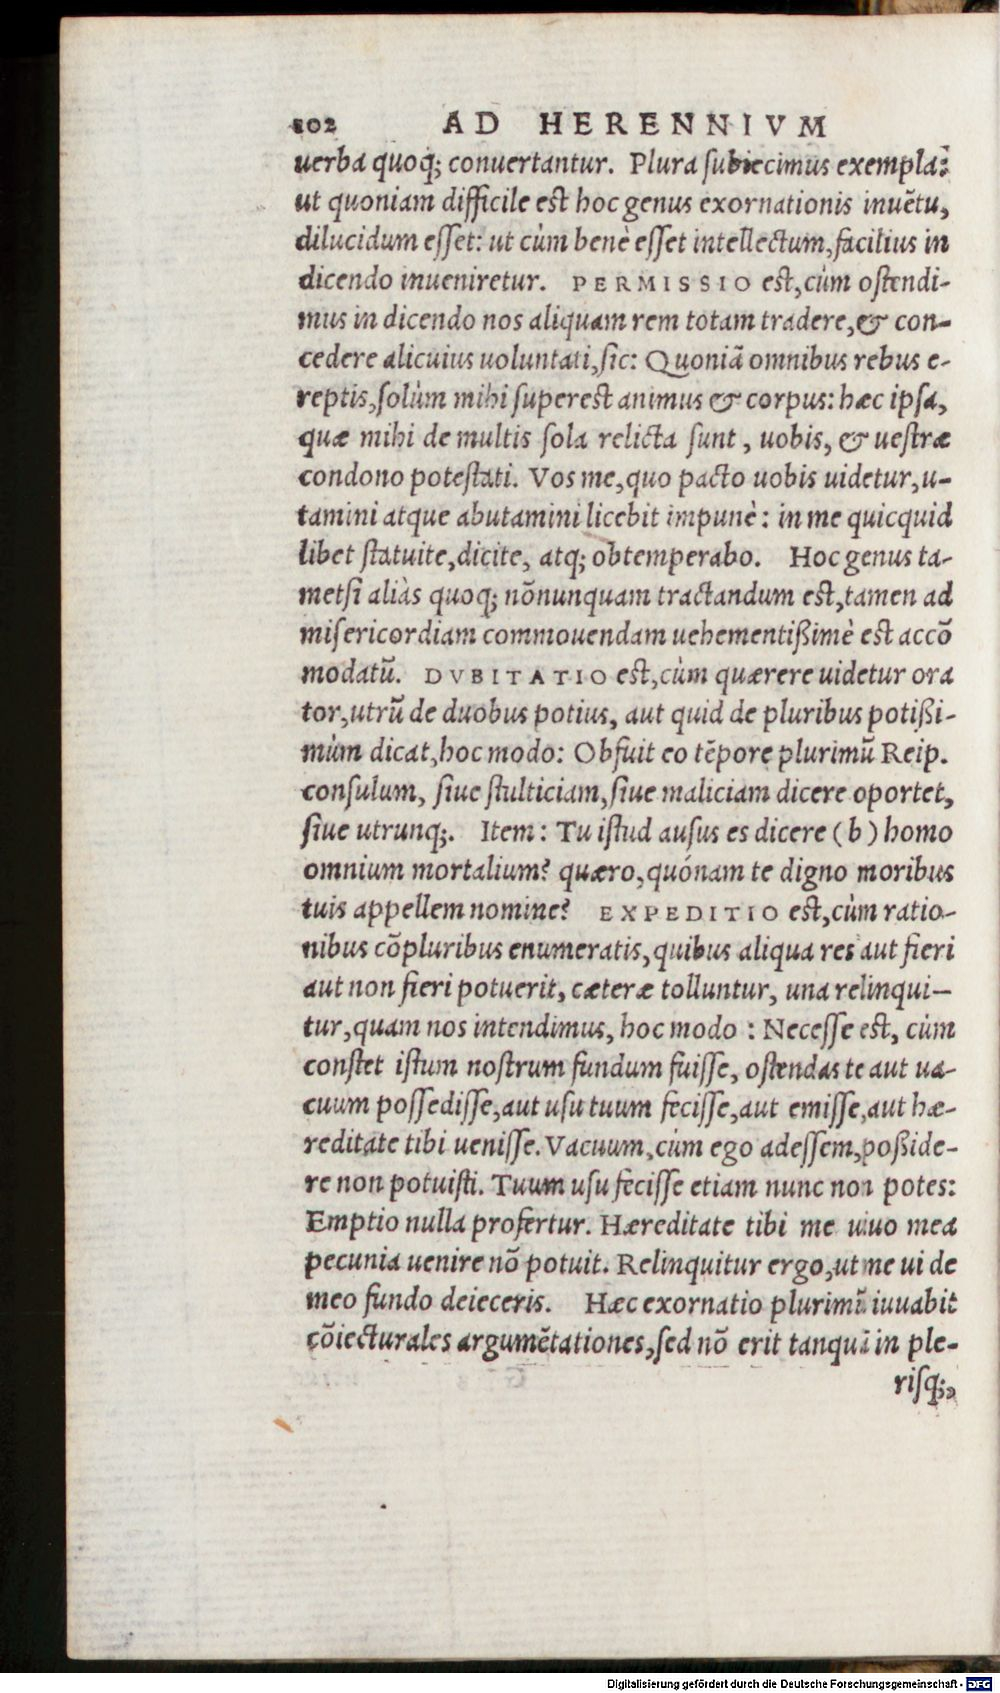 102 AD HERENNIVM
uerba quoq; conuertantur. Plura ſubiecimus exempla:
ut quoniam difficile est hoc genus exornationis inuẽtu,
dilucidum eſſet: ut cùm benè eſſet intellectum, facilius in
dicendo inueniretur. PERMISSIO est, cùm oſtendi-
mus in dicendo nos aliquam rem totam tradere, & con-
cedere alicuius uoluntati, ſic: Quoniã omnibus rebus e-
reptis, ſolùm mihi ſuperest animus & corpus: hæc ipſa,
quæ mihi de multis ſola relicta ſunt, uobis, & ueſtræ
condono poteſtati. Vos me, quo pacto uobis uidetur, u-
tamini atque abutamini licebit impunè: in me quicquid
libet ſtatuite, dicite, atq; obtemperabo. Hoc genus ta-
metſi aliàs quoq; nõnunquam tractandum est, tamen ad
miſericordiam commouendam uehementißimè est accõ
modatũ. DVBITATIO est, cùm quærere uidetur ora
tor, utrũ de duobus potius, aut quid de pluribus potißi-
mùm dicat, hoc modo: Obfuit eo tẽpore plurimũ Reip.
conſulum, ſiue ſtulticiam, ſiue maliciam dicere oportet,
ſiue utrunq;. Item: Tu iſtud auſus es dicere (b) homo
omnium mortalium? quæro, quónam te digno moribus
tuis appellem nomine? EXPEDITIO est, cùm ratio-
nibus cõpluribus enumeratis, quibus aliqua res aut fieri
aut non fieri potuerit, cæteræ tolluntur, una relinqui-
tur, quam nos intendimus, hoc modo: Neceſſe est, cùm
conſtet iſtum noſtrum fundum fuiſſe, oſtendas te aut ua-
cuum poſſediſſe, aut uſu tuum feciſſe, aut emiſſe, aut hæ-
reditate tibi ueniſſe. Vacuum, cùm ego adeſſem, poßide-
re non potuiſti. Tuum uſu feciſſe etiam nunc non potes:
Emptio nulla profertur. Hæreditate tibi me uiuo mea
pecunia uenire nõ potuit. Relinquitur ergo, ut me ui de
meo fundo deieceris. Hæc exornatio plurimũ iuuabit
cõiecturales argumẽtationes, ſed nõ erit tanquã in ple-
riſq;,
Digitalisierung gefördert durch die Deutsche Forschungsgemeinschaft - DFG